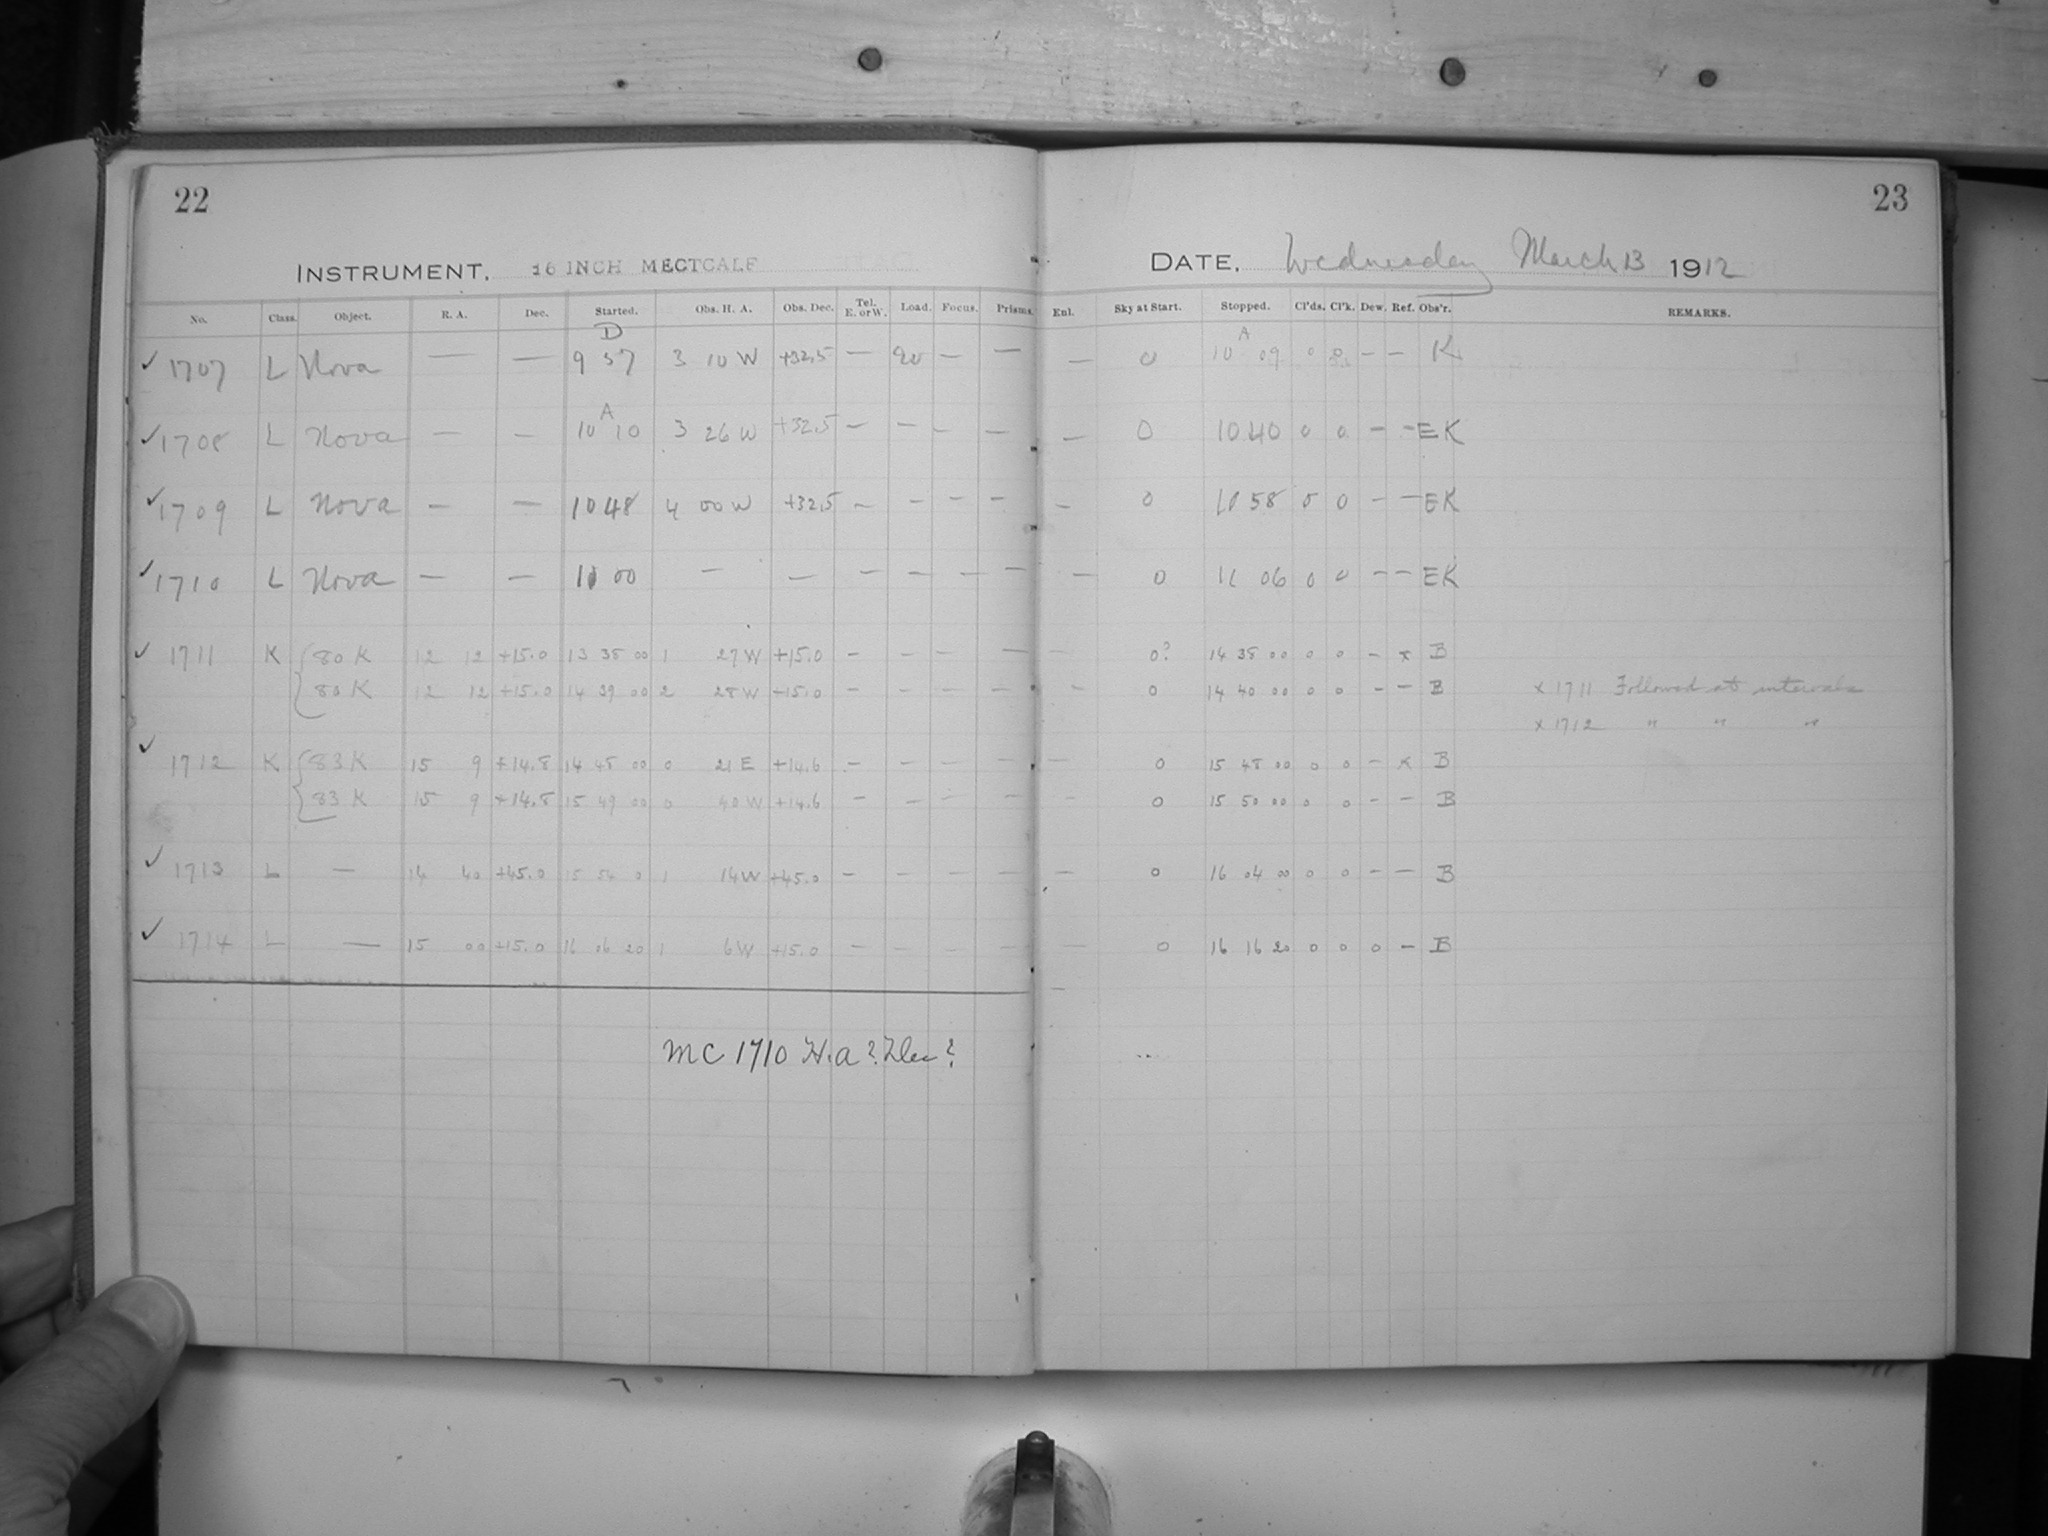 22
INSTRUMENT, 16 INCH MECTCALF
No. Class. Object. R. A. Dec. Started. Obs. H. A. Obs. Dec. Tel. E. or W. Load. Focus. Prisms.
D
✓ 1707 L Nova — — 9 57 3 10 W +32.5 — 20 — —
A
✓ 1708 L Nova — — 10 10 3 26 W +32.5 — — — —
✓ 1709 L Nova — — 10 48 4 00 W +32.5 — — — —
✓ 1710 L Nova — — 11 00 — — — — — —
✓ 1711 K { 80 K 12 12 +15.0 13 38 00 1 27 W +15.0 — — — —
80 K 12 12 +15.0 14 39 00 2 28 W +15.0 — — — —
✓ 1712 K { 83 K 15 9 +14.8 14 48 00 0 21 E +14.6 — — — —
83 K 15 9 +14.8 15 49 00 0 40 W +14.6 — — — —
✓ 1713 L — 14 40 +45.0 15 54 0 1 14 W +45.0 — — — —
✓ 1714 L — 15 00 +15.0 16 06 20 1 6 W +15.0 — — — —
MC 1710 H.a? Dec?
23
DATE, Wednesday March 13 1912
Enl. Sky at Start. Stopped. Cl'ds. Cl'k. Dew. Ref. Obs'r. REMARKS.
A
— 0 10 09 0 — — K
— 0 10 40 0 0 — — EK
— 0 10 58 0 0 — — EK
— 0 11 06 0 0 — — EK
— 0? 14 38 00 0 0 — x B
— 0 14 40 00 0 0 — — B x 1711 Followed at intervals
x 1712 " " "
— 0 15 48 00 0 0 — x B
— 0 15 50 00 0 0 — — B
— 0 16 04 00 0 0 — — B
— 0 16 16 20 0 0 0 — B